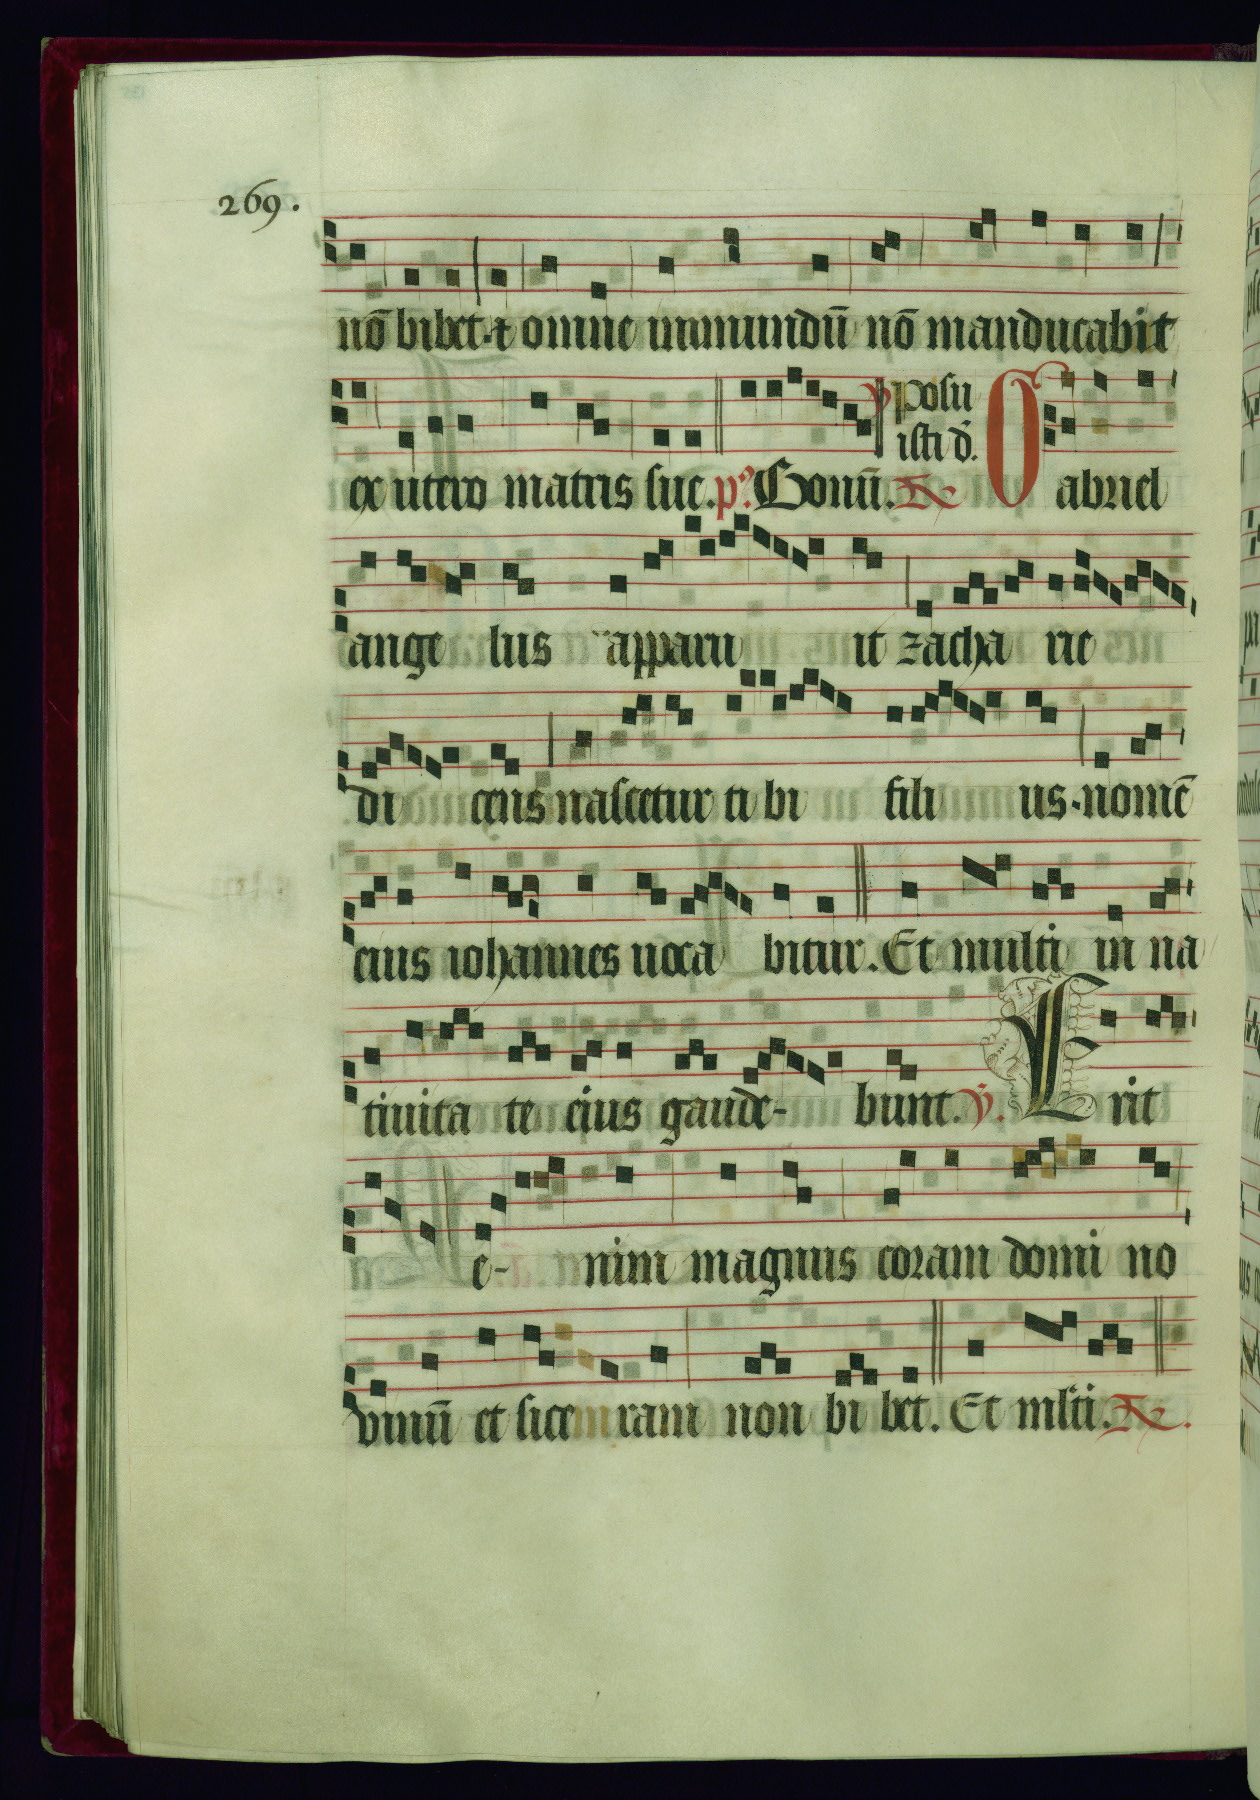 269.
nō bibet · ⁊ omne inmundū nō manducabit
ex utero matris sue. ps. Bonū. ℣ posu
isti d̄. ℟ Gabriel
ange lus apparu it zacha rie
di cens nascetur ti bi fili us · nomē
eius iohannes uoca bitur. Et multi in na
tiuita te eius gaude- bunt. ℣. Erit
e- nim magnus coram domi no
vinū et siceram non bi bet. Et mlti. ℟.